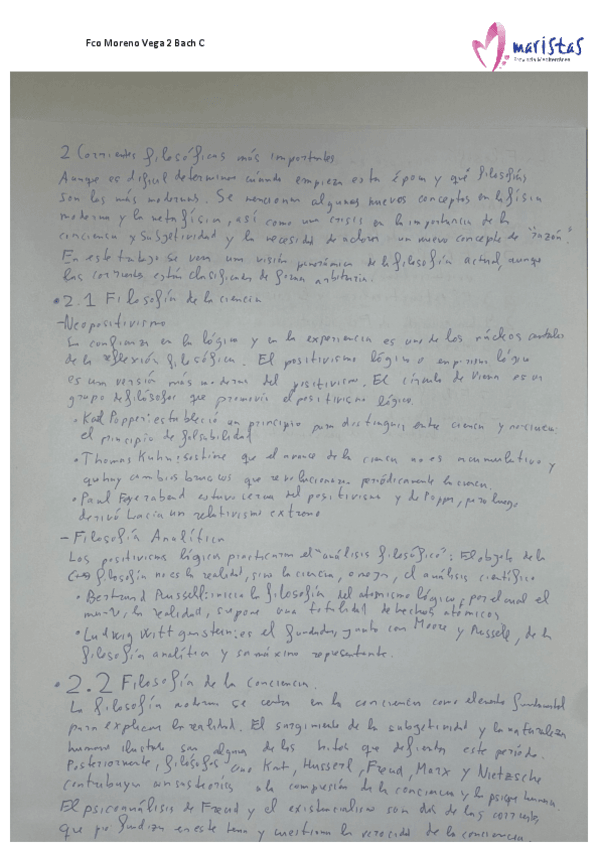 Fco Moreno Vega 2 Bach C
maristas
2 Corrientes filosóficas más importantes
Aunque es difícil determinar cuándo empieza esta época y qué filosofías
son las más modernas. Se mencionan algunos nuevos conceptos en la física
moderna y la metafísica, así como una crisis en la importancia de la
conciencia y subjetividad y la necesidad de un nuevo concepto de "razón".
En este trabajo se verá una visión panorámica de la filosofía actual, aunque
las corrientes están clasificadas de forma arbitraria.
• 2.1 Filosofía de la ciencia
- Neopositivismo
La confianza en la lógica y en la experiencia es uno de los núcleos centrales
de la reflexión filosófica. El positivismo lógico o empirismo lógico
es una versión más moderna del positivismo. El círculo de Viena es un
grupo de filósofos que promovía el positivismo lógico.
• Karl Popper: estableció un principio para distinguir entre ciencia y no ciencia:
el principio de falsabilidad
• Thomas Kuhn: sostiene que el avance de la ciencia no es acumulativo y
que hay cambios bruscos que revolucionan periódicamente la ciencia.
• Paul Feyerabend estuvo cerca del positivismo y de Popper, pero luego
derivó hacia un relativismo extremo
- Filosofía Analítica
Los positivistas lógicos practicaron el "análisis filosófico": El objeto de la
filosofía no es la realidad, sino la ciencia, o mejor, el análisis científico
• Bertrand Russell: inicia la filosofía del atomismo lógico, por el cual el
mundo, la realidad, supone una totalidad de hechos atómicos
• Ludwig Wittgenstein: es el fundador, junto con Moore y Russell, de la
filosofía analítica y su máximo representante.
• 2.2 Filosofía de la Conciencia.
La filosofía moderna se centra en la conciencia como elemento fundamental
para explicar la realidad. El surgimiento de la subjetividad y la naturaleza
humana ilustrada son algunos de los hitos que definen este período.
Posteriormente, filósofos como Kant, Husserl, Freud, Marx y Nietzsche
contribuyen con sus teorías a la comprensión de la conciencia y la psique humana.
El psicoanálisis de Freud y el existencialismo son dos de las corrientes
que profundizan en este tema y cuestionan la veracidad de la conciencia.